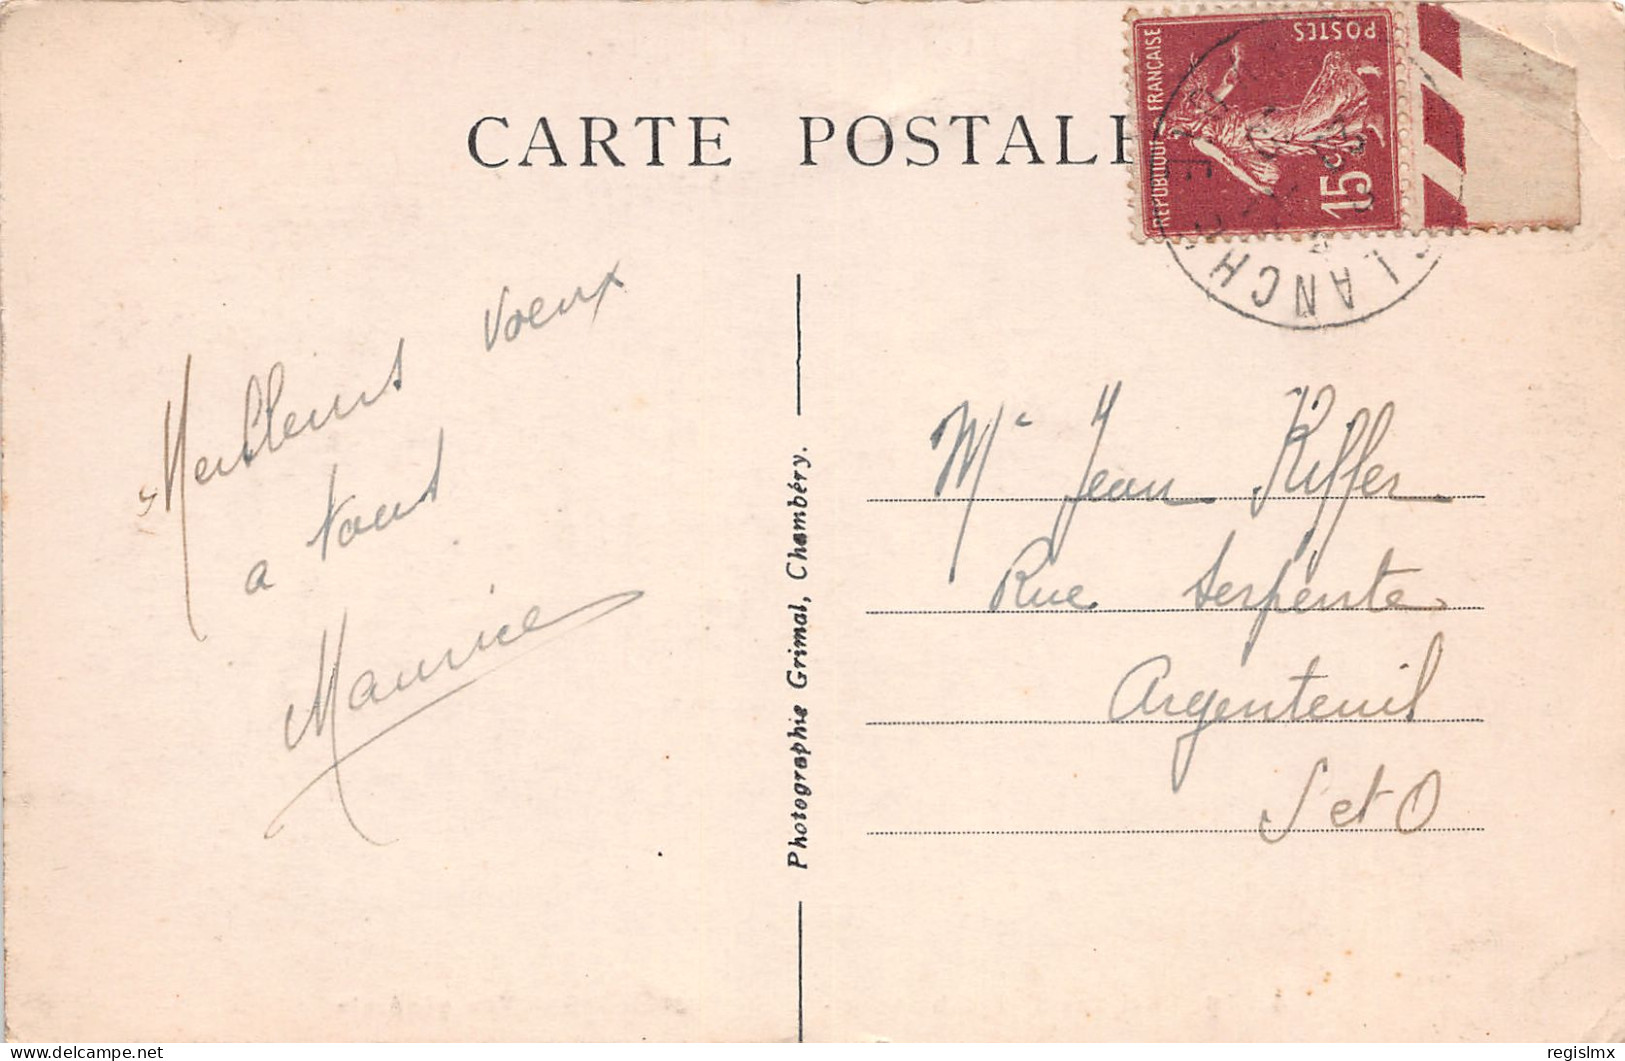 CARTE POSTALE
RÉPUBLIQUE FRANÇAISE
POSTES
15c
LANCH
Meilleurs voeux
a tous
Maurice
Photographie Grimal, Chambéry.
Mr Jean Kiffer
Rue Serpente
Argenteuil
S et O
regislmx